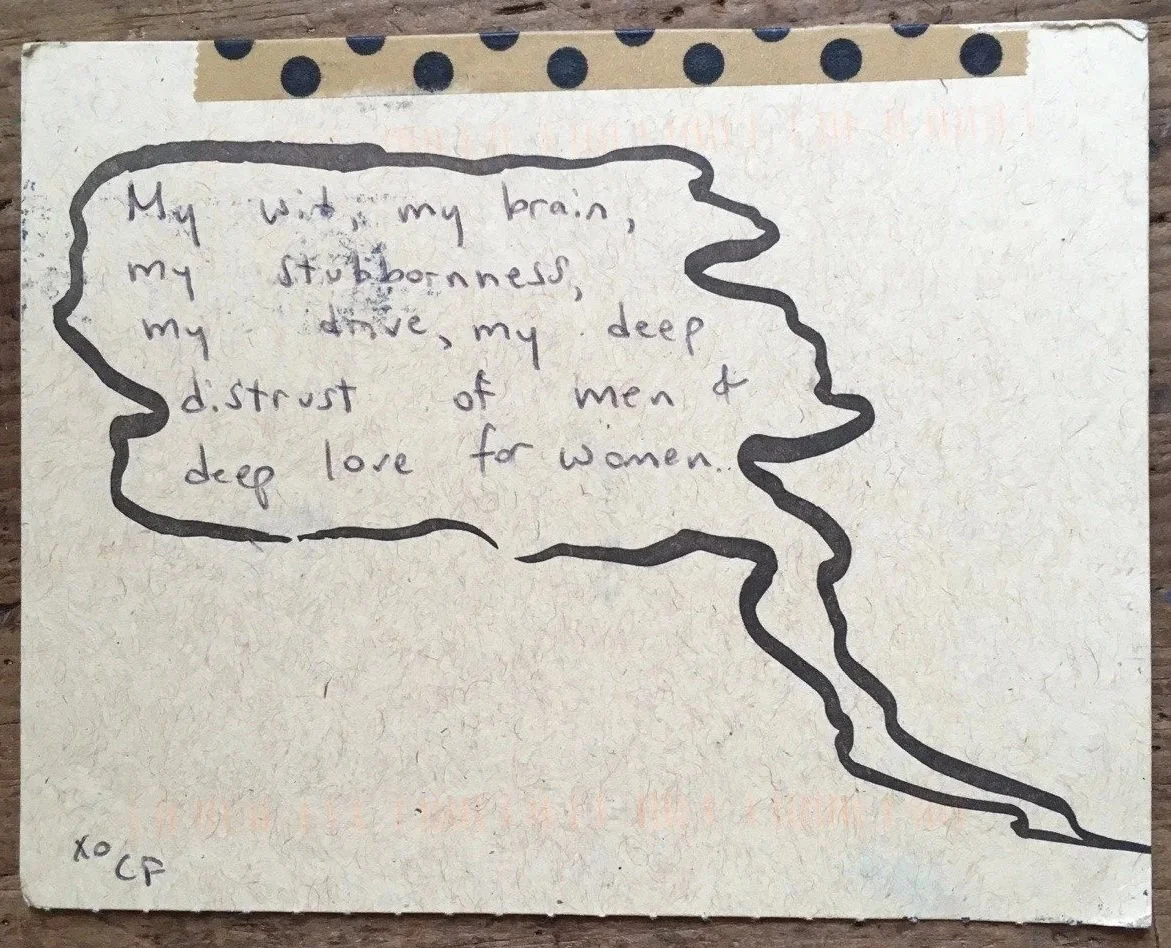 My wit, my brain,
my stubbornness,
my drive, my deep
distrust of men &
deep love for women..
xo
CF